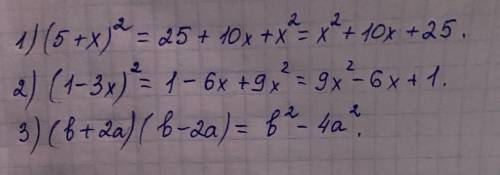 1) (5+x)² = 25 + 10x + x² = x² + 10x + 25.
2) (1-3x)² = 1 - 6x + 9x² = 9x² - 6x + 1.
3) (b+2a)(b-2a) = b² - 4a².